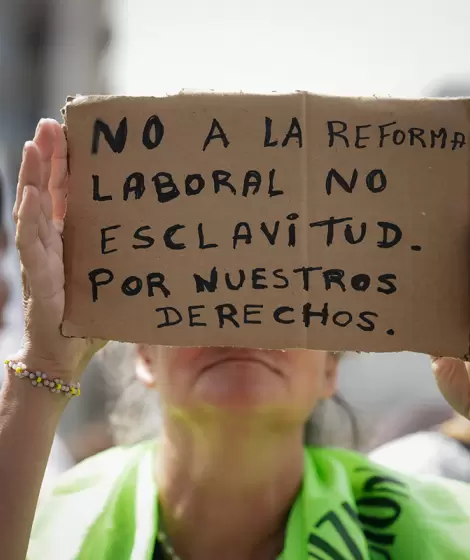 NO A LA REFORMA
LABORAL NO
ESCLAViTUD.
POR NUESTROS
DERECHOS.